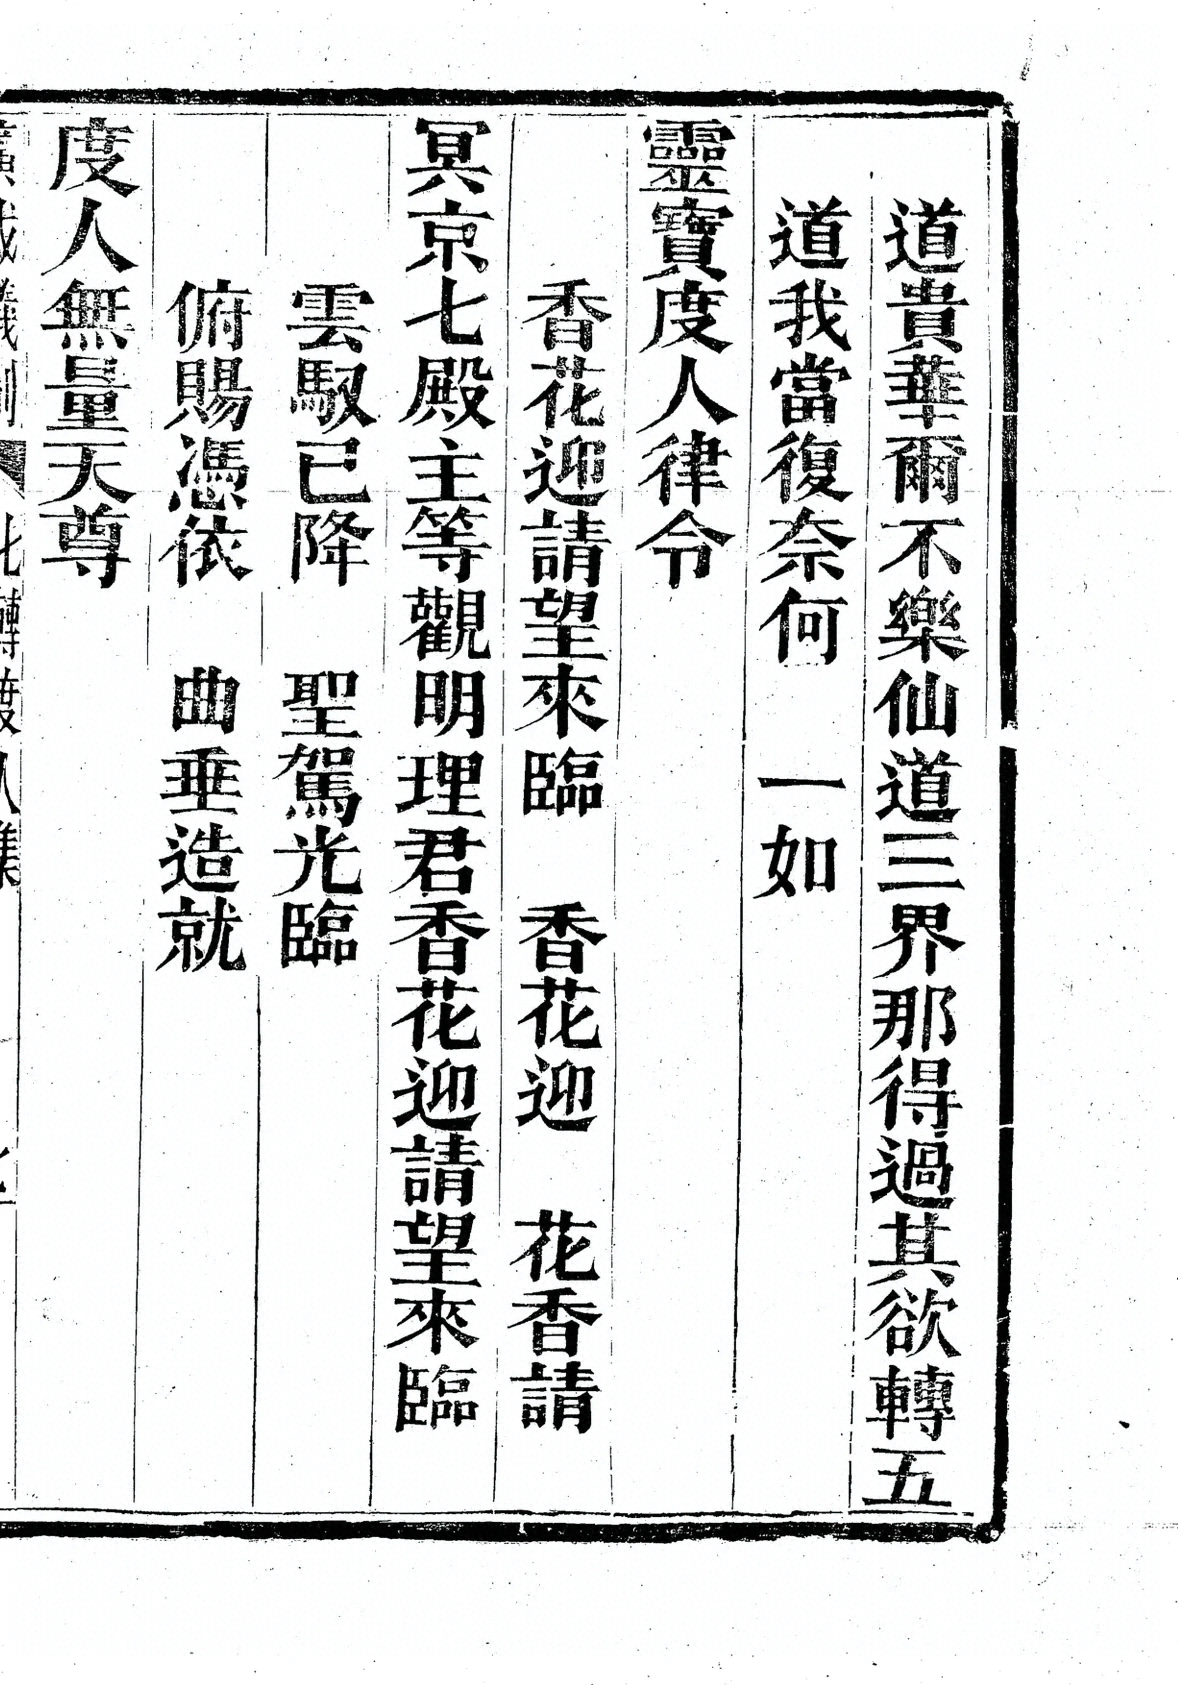 道貴華爾不樂仙道三界那得過其欲轉五
道我當復奈何　一如
靈寶度人律令
香花迎請望來臨　香花迎　花香請
冥京七殿主等觀明理君香花迎請望來臨
雲馭已降　聖駕光臨
俯賜憑依　曲垂造就
度人無量天尊